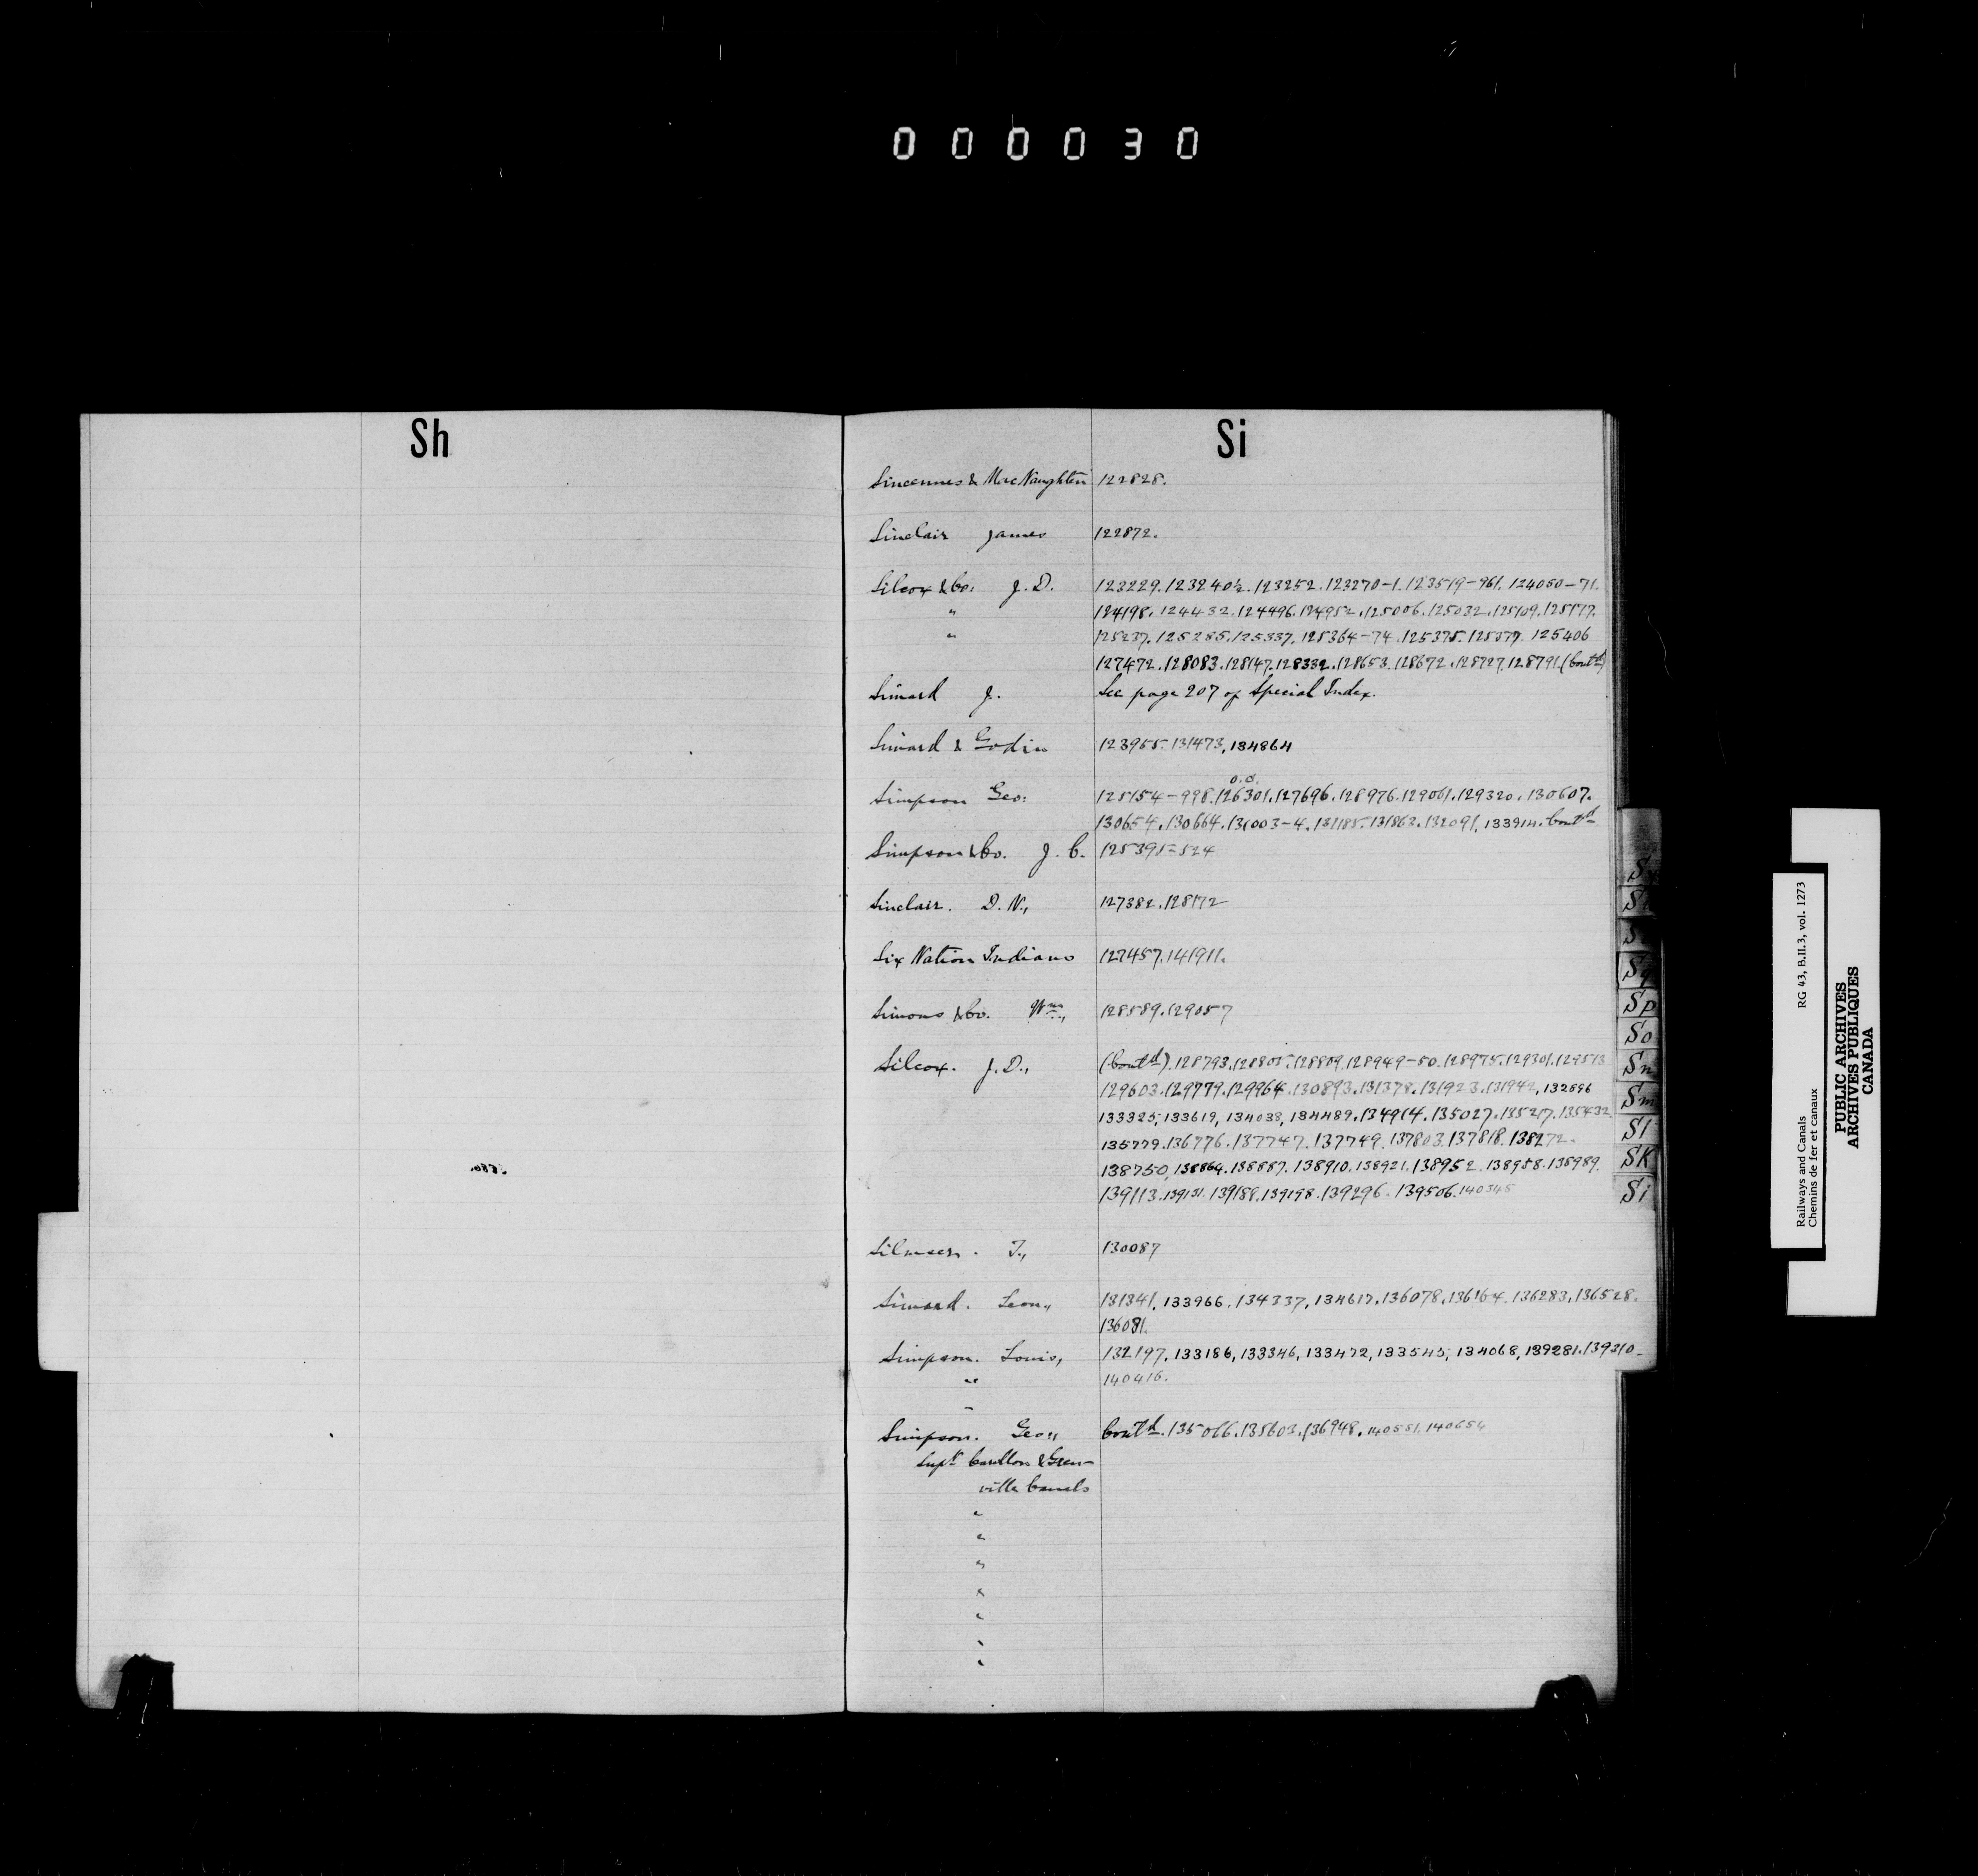 000030
Sh
Si
Sincennes & MacNaughten 122828.
Sinclair James 122872.
Silcox & Co. J. D. 123229. 123240½. 123252. 123270-1. 123519-961. 124050-71.
" 124198. 124432. 124496. 124952. 125006. 125032. 125109. 125177.
" 125237. 125285. 125337. 125364-74. 125375. 125377. 125406
127472. 128083. 128147. 128332. 128653. 128672. 128727. 128791. (Contd)
Simard J. See page 207 of Special Index.
Simard & Godin 123955. 131473, 134864
o.o.
Simpson Geo: 125154-998. 126301. 127696. 128976. 129061. 129320. 130607.
130654. 130664. 131003-4. 131185. 131862. 132091, 133914. Contd
Simpson & Co. J. C. 125395=524
Sinclair. D. N., 127382. 128172
Six Nation Indians 127457. 141911.
Simons & Co. Wm., 128589. 129057
Silcox. J. D., (Contd). 128793. 128805. 128809. 128949-50. 128975. 129301. 129513
129603. 129779. 129964. 130893. 131378. 131923. 131942, 132596
133325, 133619, 134038, 134489. 134914. 135027. 135217. 135432
135779. 136776. 137747. 137749. 137803. 137818. 138272.
138750, 138864. 138887. 138910. 138921. 138952. 138958. 138989.
139113. 139131. 139189. 139198. 139296. 139506. 140345
Silmser. T., 130087
Simard. Leon., 131341, 133966. 134337, 134617. 136078. 136164. 136283, 136528.
136081.
Simpson. Louis, 132197, 133186, 133346, 133472, 133545, 134068, 139281. 139310-
" 140416.
"
Simpson. Geo., Contd. 135066. 135603. 136948. 140551. 140654
Supt Carillon & Gren-
ville Canals
"
"
"
"
"
"
"
S
Sq
Sp
So
Sn
Sm
Sl
SK
Si
Railways and Canals RG 43, B.II.3, vol. 1273
Chemins de fer et canaux
PUBLIC ARCHIVES
ARCHIVES PUBLIQUES
CANADA